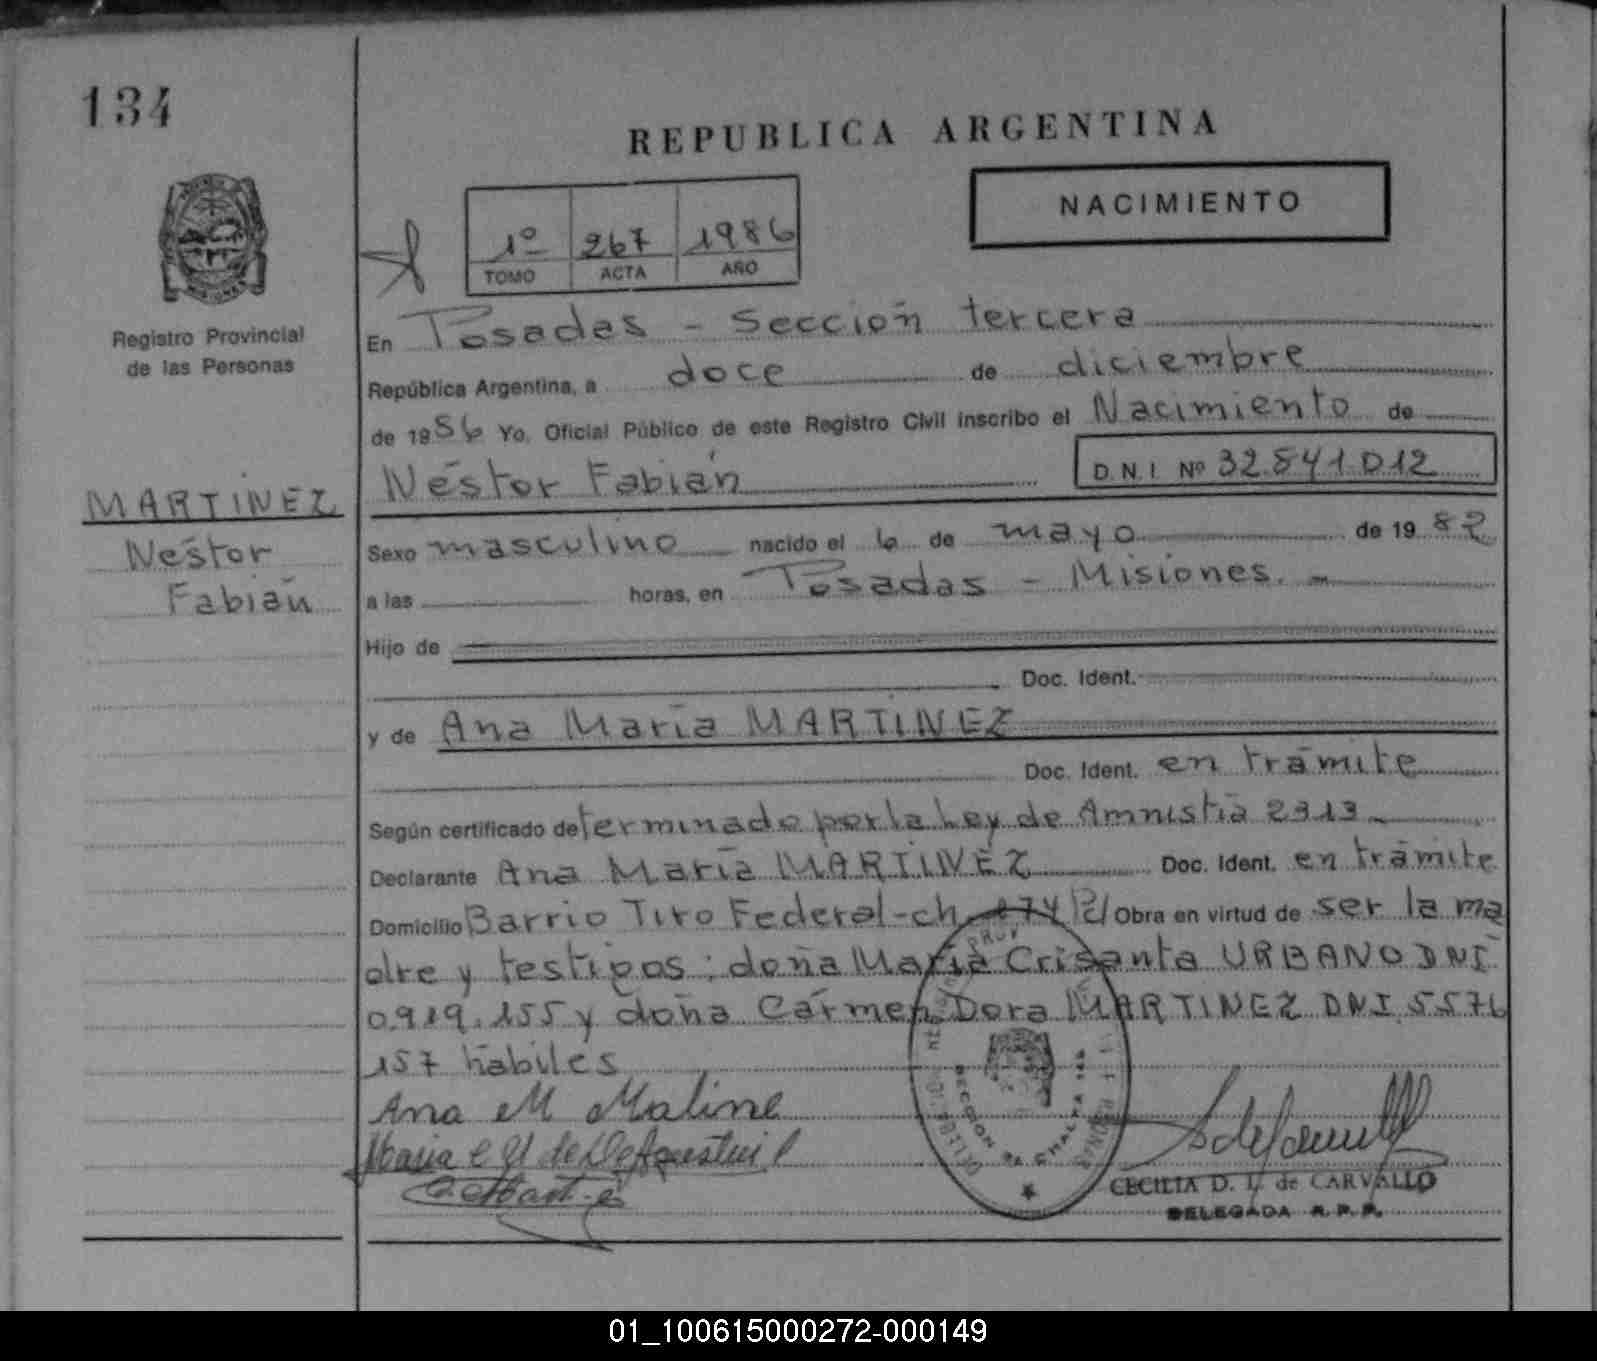 134
REPUBLICA ARGENTINA
NACIMIENTO
1º 267 1986
TOMO ACTA AÑO
Registro Provincial
de las Personas
En Posadas - Sección tercera
República Argentina, a doce de diciembre
de 1986 Yo, Oficial Público de este Registro Civil inscribo el Nacimiento de
Néstor Fabián
D.N.I. Nº 32.841.012
MARTINEZ
Néstor
Fabián
Sexo masculino nacido el 6 de mayo de 1982
a las horas, en Posadas - Misiones. -
Hijo de
Doc. Ident.
y de Ana María MARTINEZ
Doc. Ident. en trámite
Según certificado determinado por la Ley de Amnistía 2313 -
Declarante Ana María MARTINEZ Doc. Ident. en trámite
Domicilio Barrio Tiro Federal-ch. 174 Obra en virtud de ser la ma
dre y testigos: doña María Crisanta URBANO DNI
0.919.155 y doña Cármen Dora MARTINEZ DNI 5576
157 hábiles
Ana M
CECILIA D. L. de CARVALLO
DELEGADA R.P.P.
01_100615000272-000149